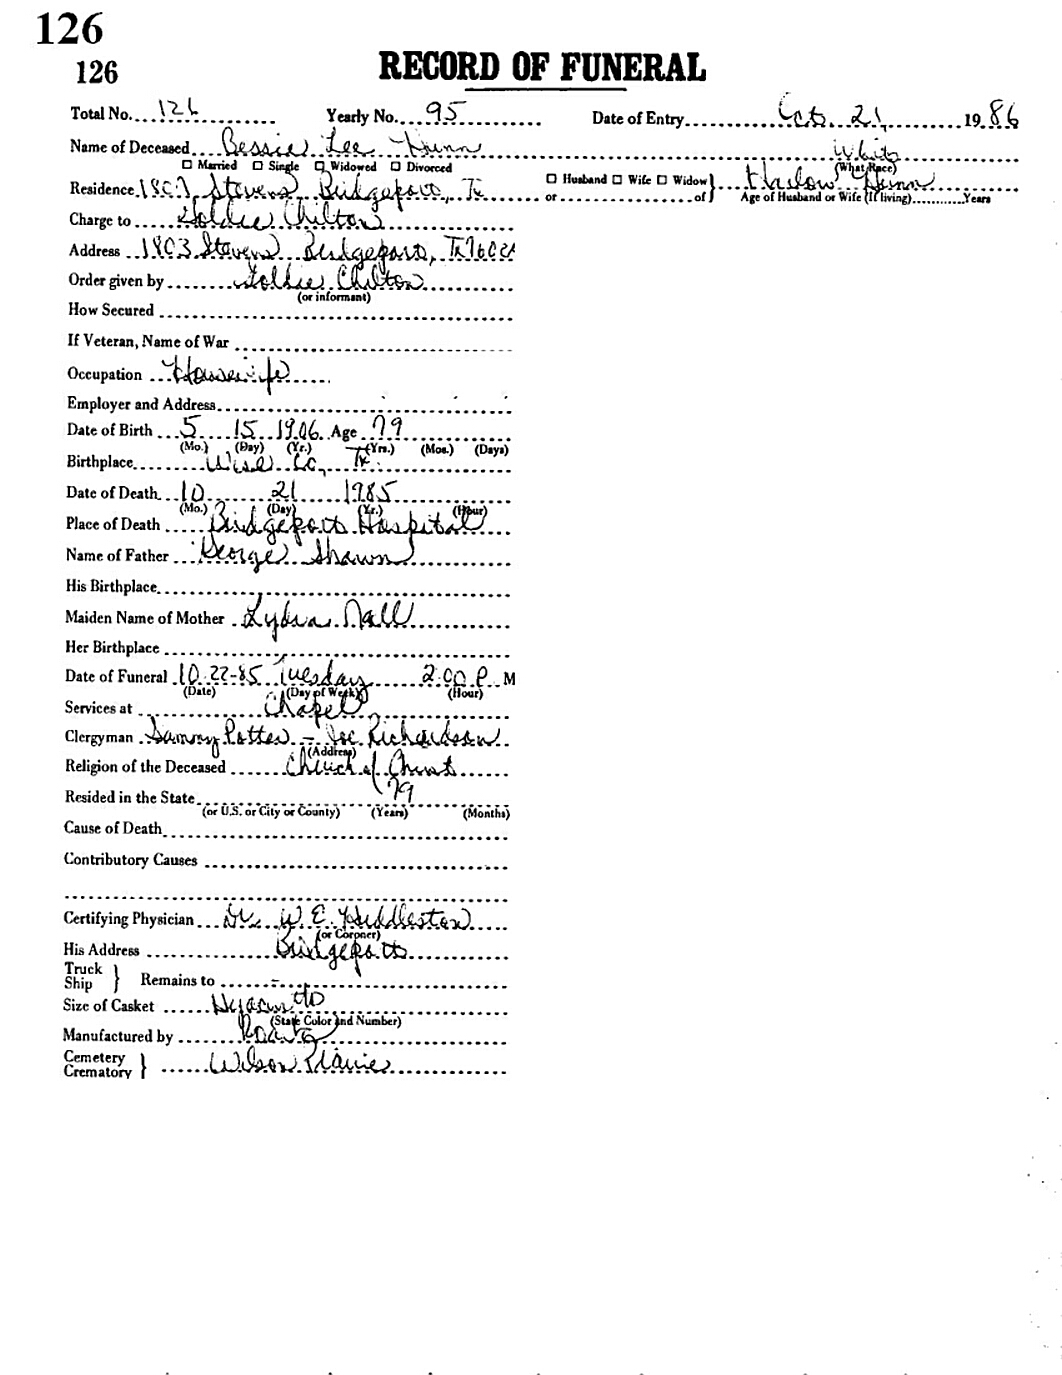 126
126
RECORD OF FUNERAL
Total No. 126 Yearly No. 95 Date of Entry Oct. 21, 19 86
Name of Deceased Bessie Lee Hunn White
☐ Married ☐ Single ☐ Widowed ☐ Divorced (What Race)
Residence 1803 Stevens Bridgeport, Tx ☐ Husband ☐ Wife ☐ Widow } Harlow Hunn
or of } Age of Husband or Wife (If living) Years
Charge to Goldie Chilton
Address 1803 Stevens Bridgeport, Tx 76026
Order given by Goldie Chilton
(or informant)
How Secured
If Veteran, Name of War
Occupation Housewife
Employer and Address
Date of Birth 5 15 1906 Age 79
(Mo.) (Day) (Yr.) (Yrs.) (Mos.) (Days)
Birthplace Wise Co, Tx.
Date of Death 10 21 1985
(Mo.) (Day) (Yr.) (Hour)
Place of Death Bridgeport Hospital
Name of Father George Shawn
His Birthplace
Maiden Name of Mother Lydia Nall
Her Birthplace
Date of Funeral 10-22-85 Tuesday 2:00 P. M
(Date) (Day of Week) (Hour)
Services at Chapel
Clergyman Sammy Potter - Joe Richardson
(Address)
Religion of the Deceased Church of Christ
Resided in the State 79
(or U.S. or City or County) (Years) (Months)
Cause of Death
Contributory Causes
Certifying Physician Dr. W. E. Huddleston
(or Coroner)
His Address Bridgeport
Truck
Ship } Remains to -
Size of Casket
(State Color and Number)
Manufactured by
Cemetery
Crematory } Wilson Prairie